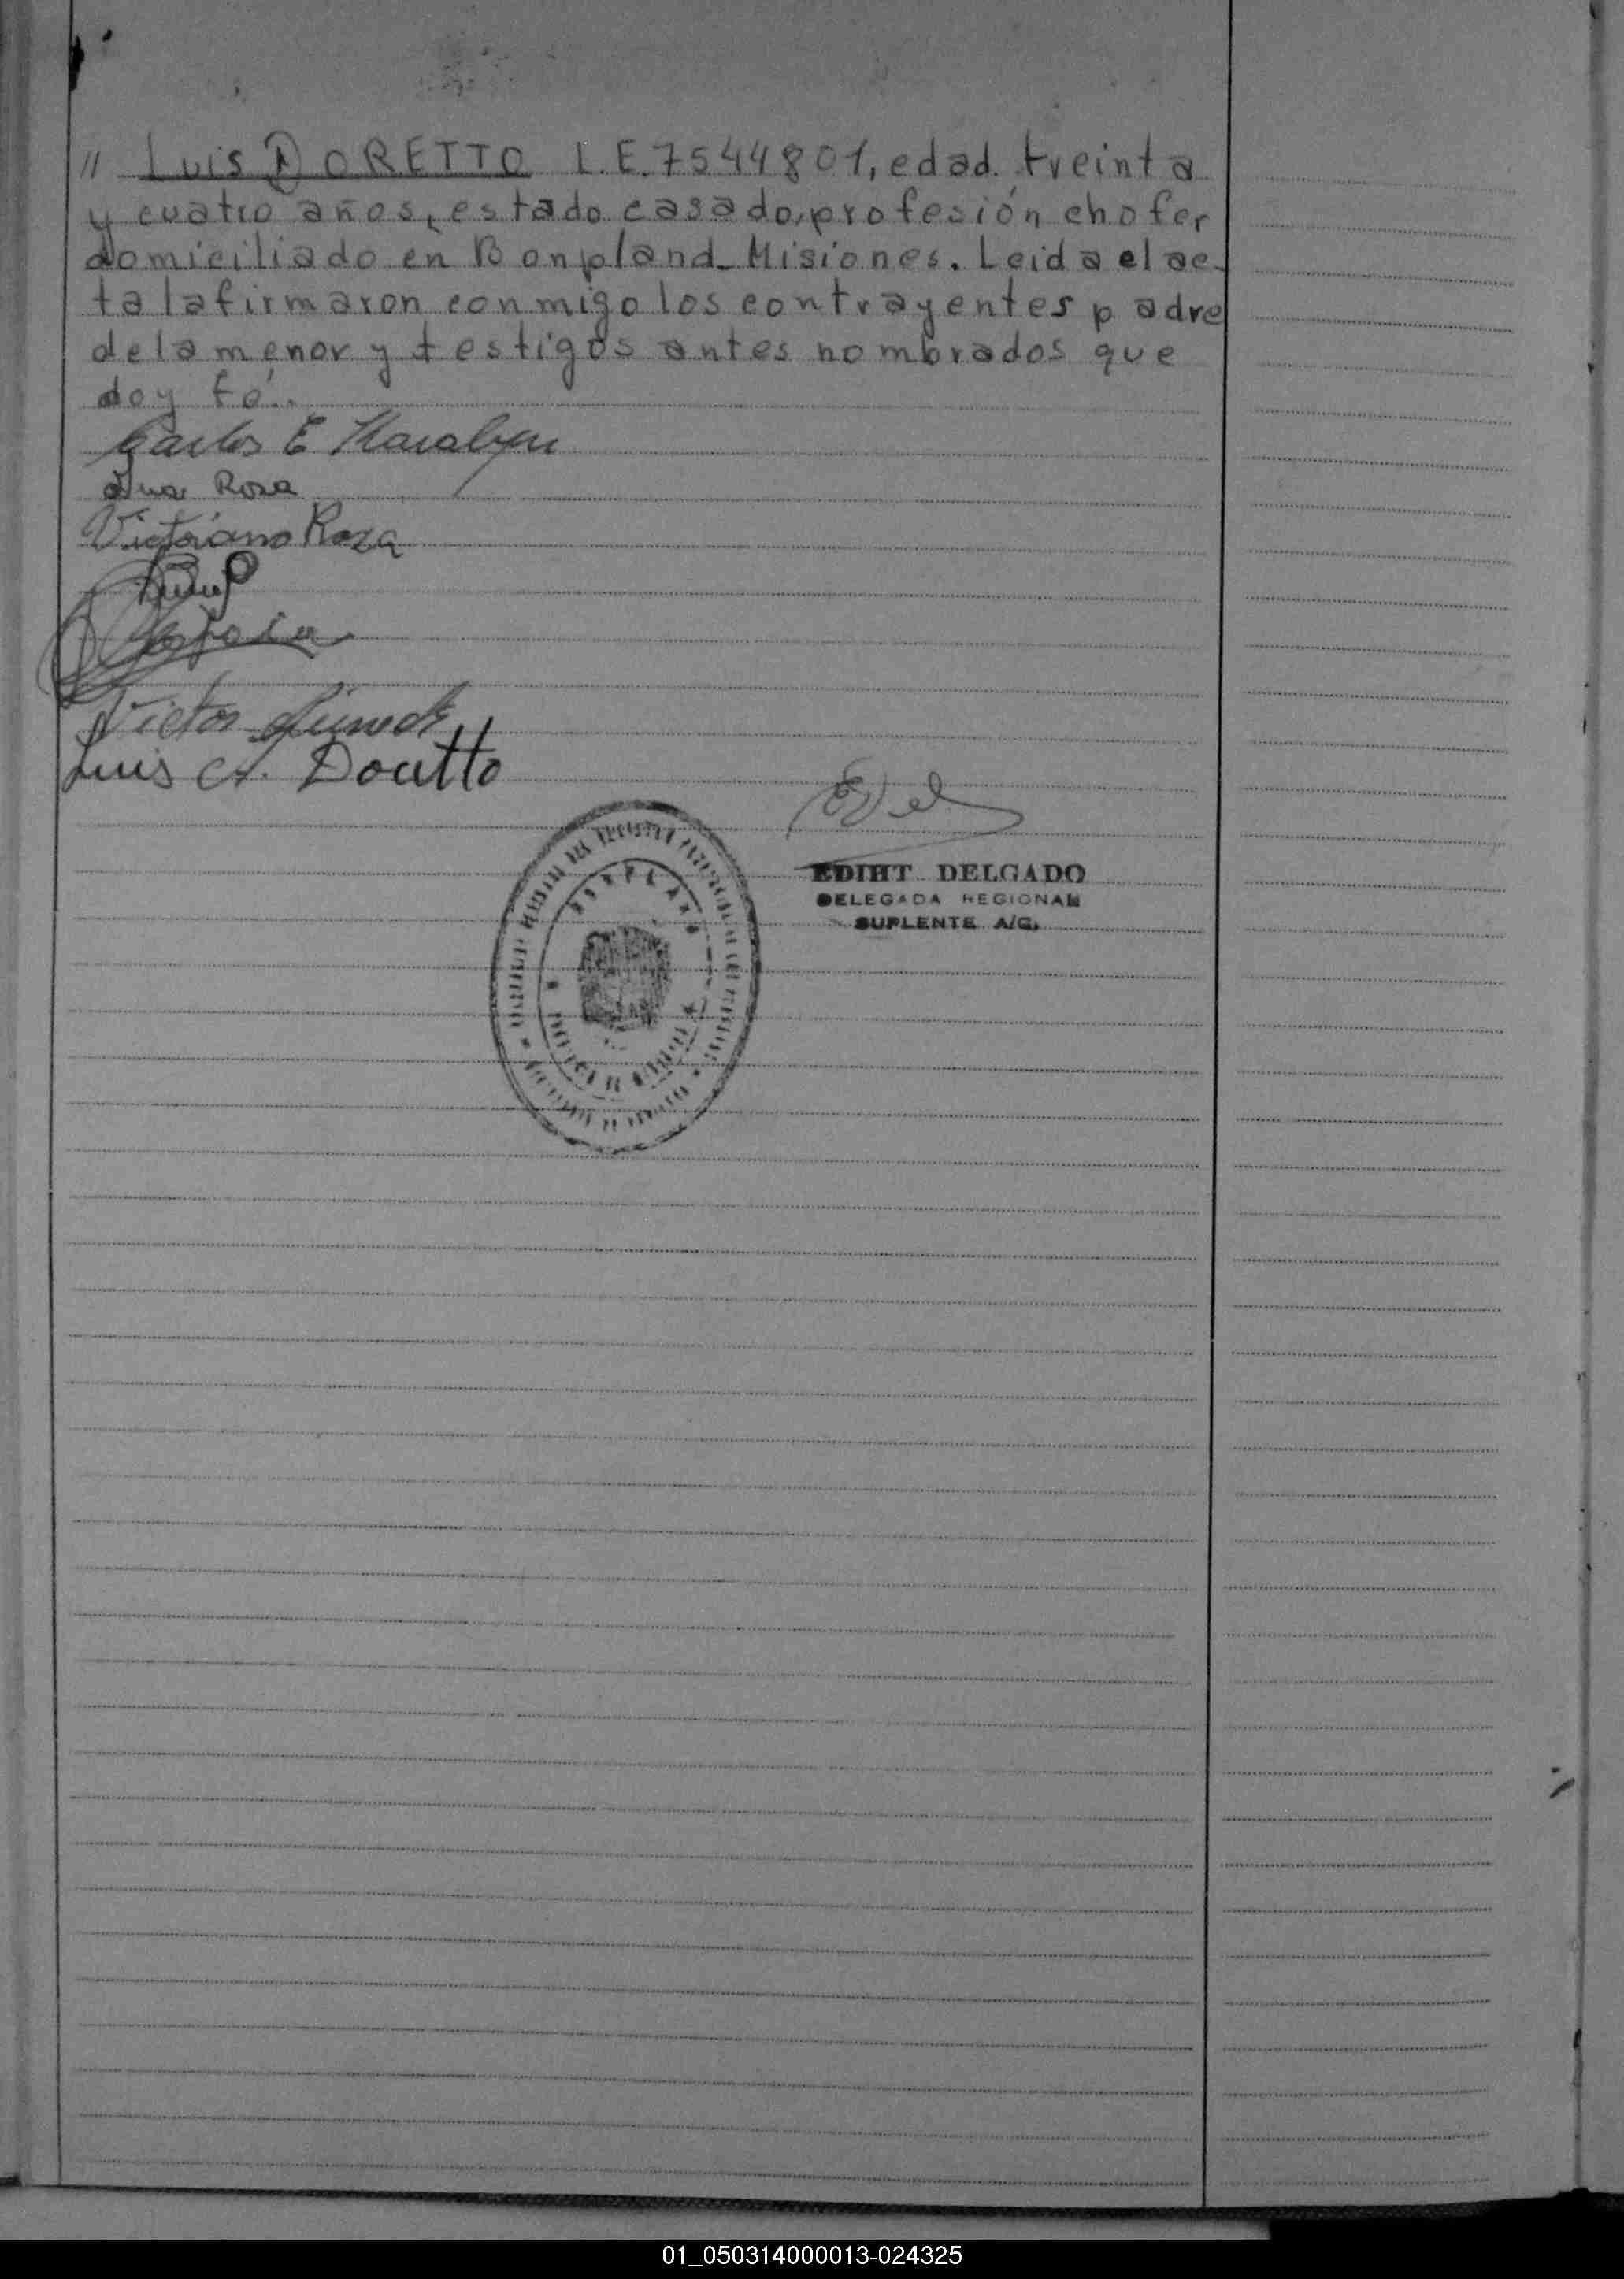 // Luis DORETTO L.E. 7544801, edad. treinta
y cuatro años, estado casado, profesión chofer
domiciliado en Bonpland_ Misiones. Leida el ac-
ta la firmaron conmigo los contrayentes padre
de la menor y testigos antes nombrados que
doy fé.
Carlos E
Ana Rosa
Victoriano Roza
Victor
Luis A. Doretto
EDIHT DELGADO
DELEGADA REGIONAL
SUPLENTE A/C.
BONPLAND
01_050314000013-024325